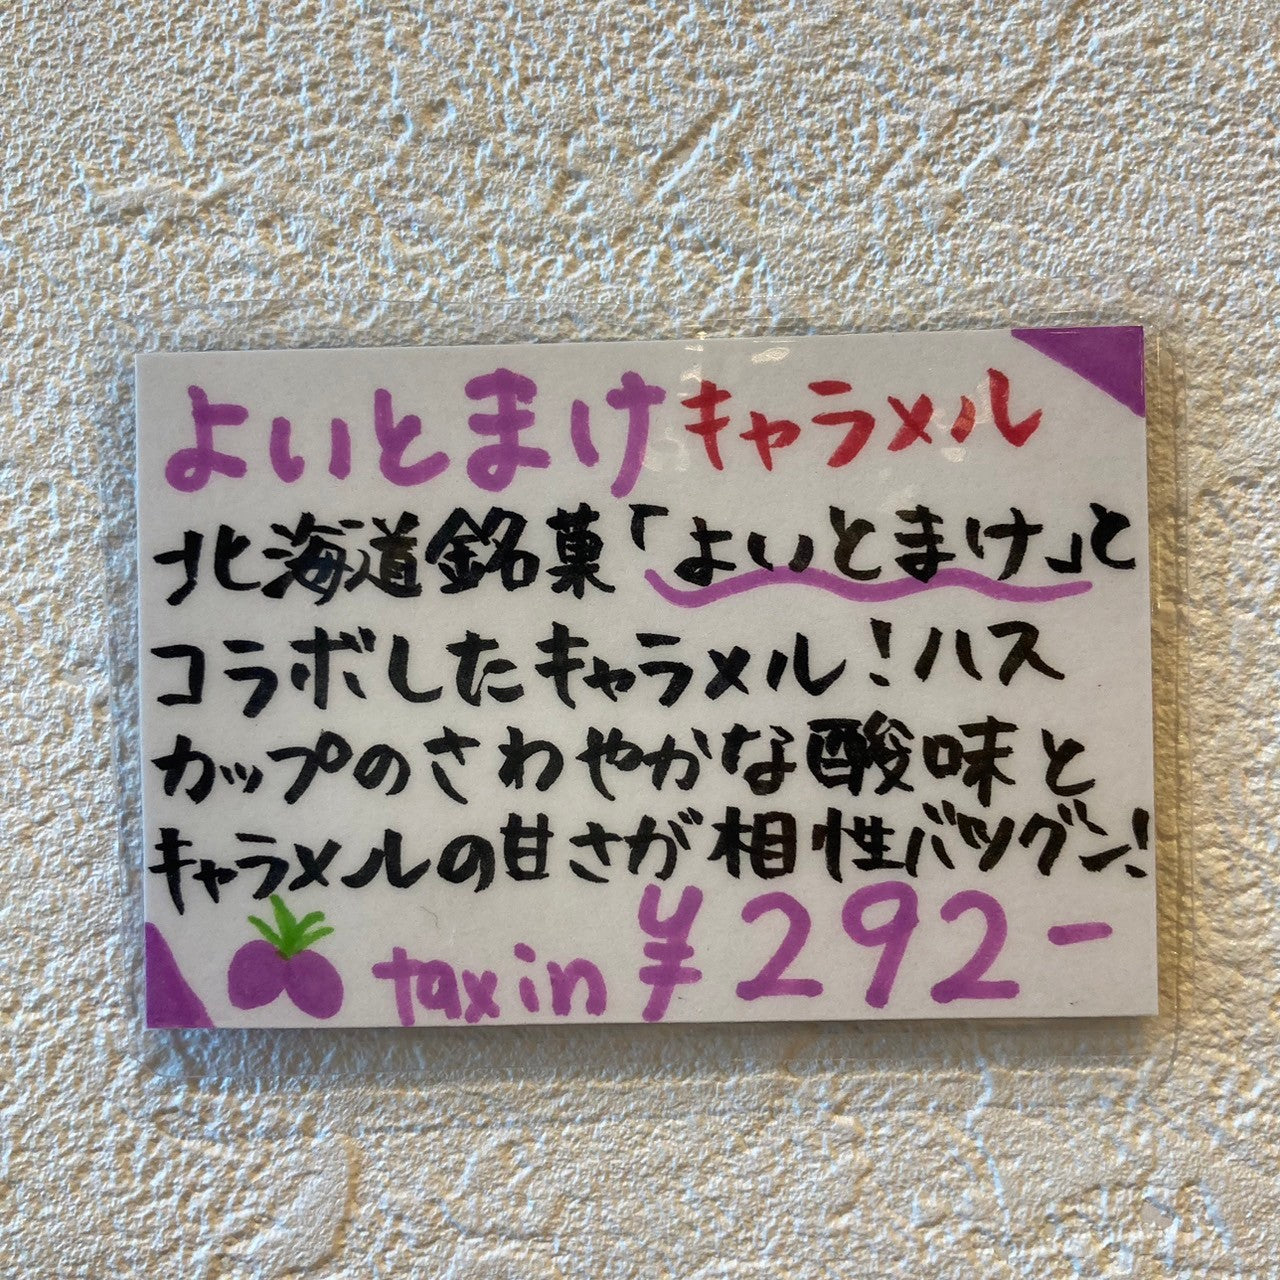 よいとまけキャラメル
北海道銘菓「よいとまけ」と
コラボしたキャラメル！ハス
カップのさわやかな酸味と
キャラメルの甘さが相性バツグン！
tax in ¥292-